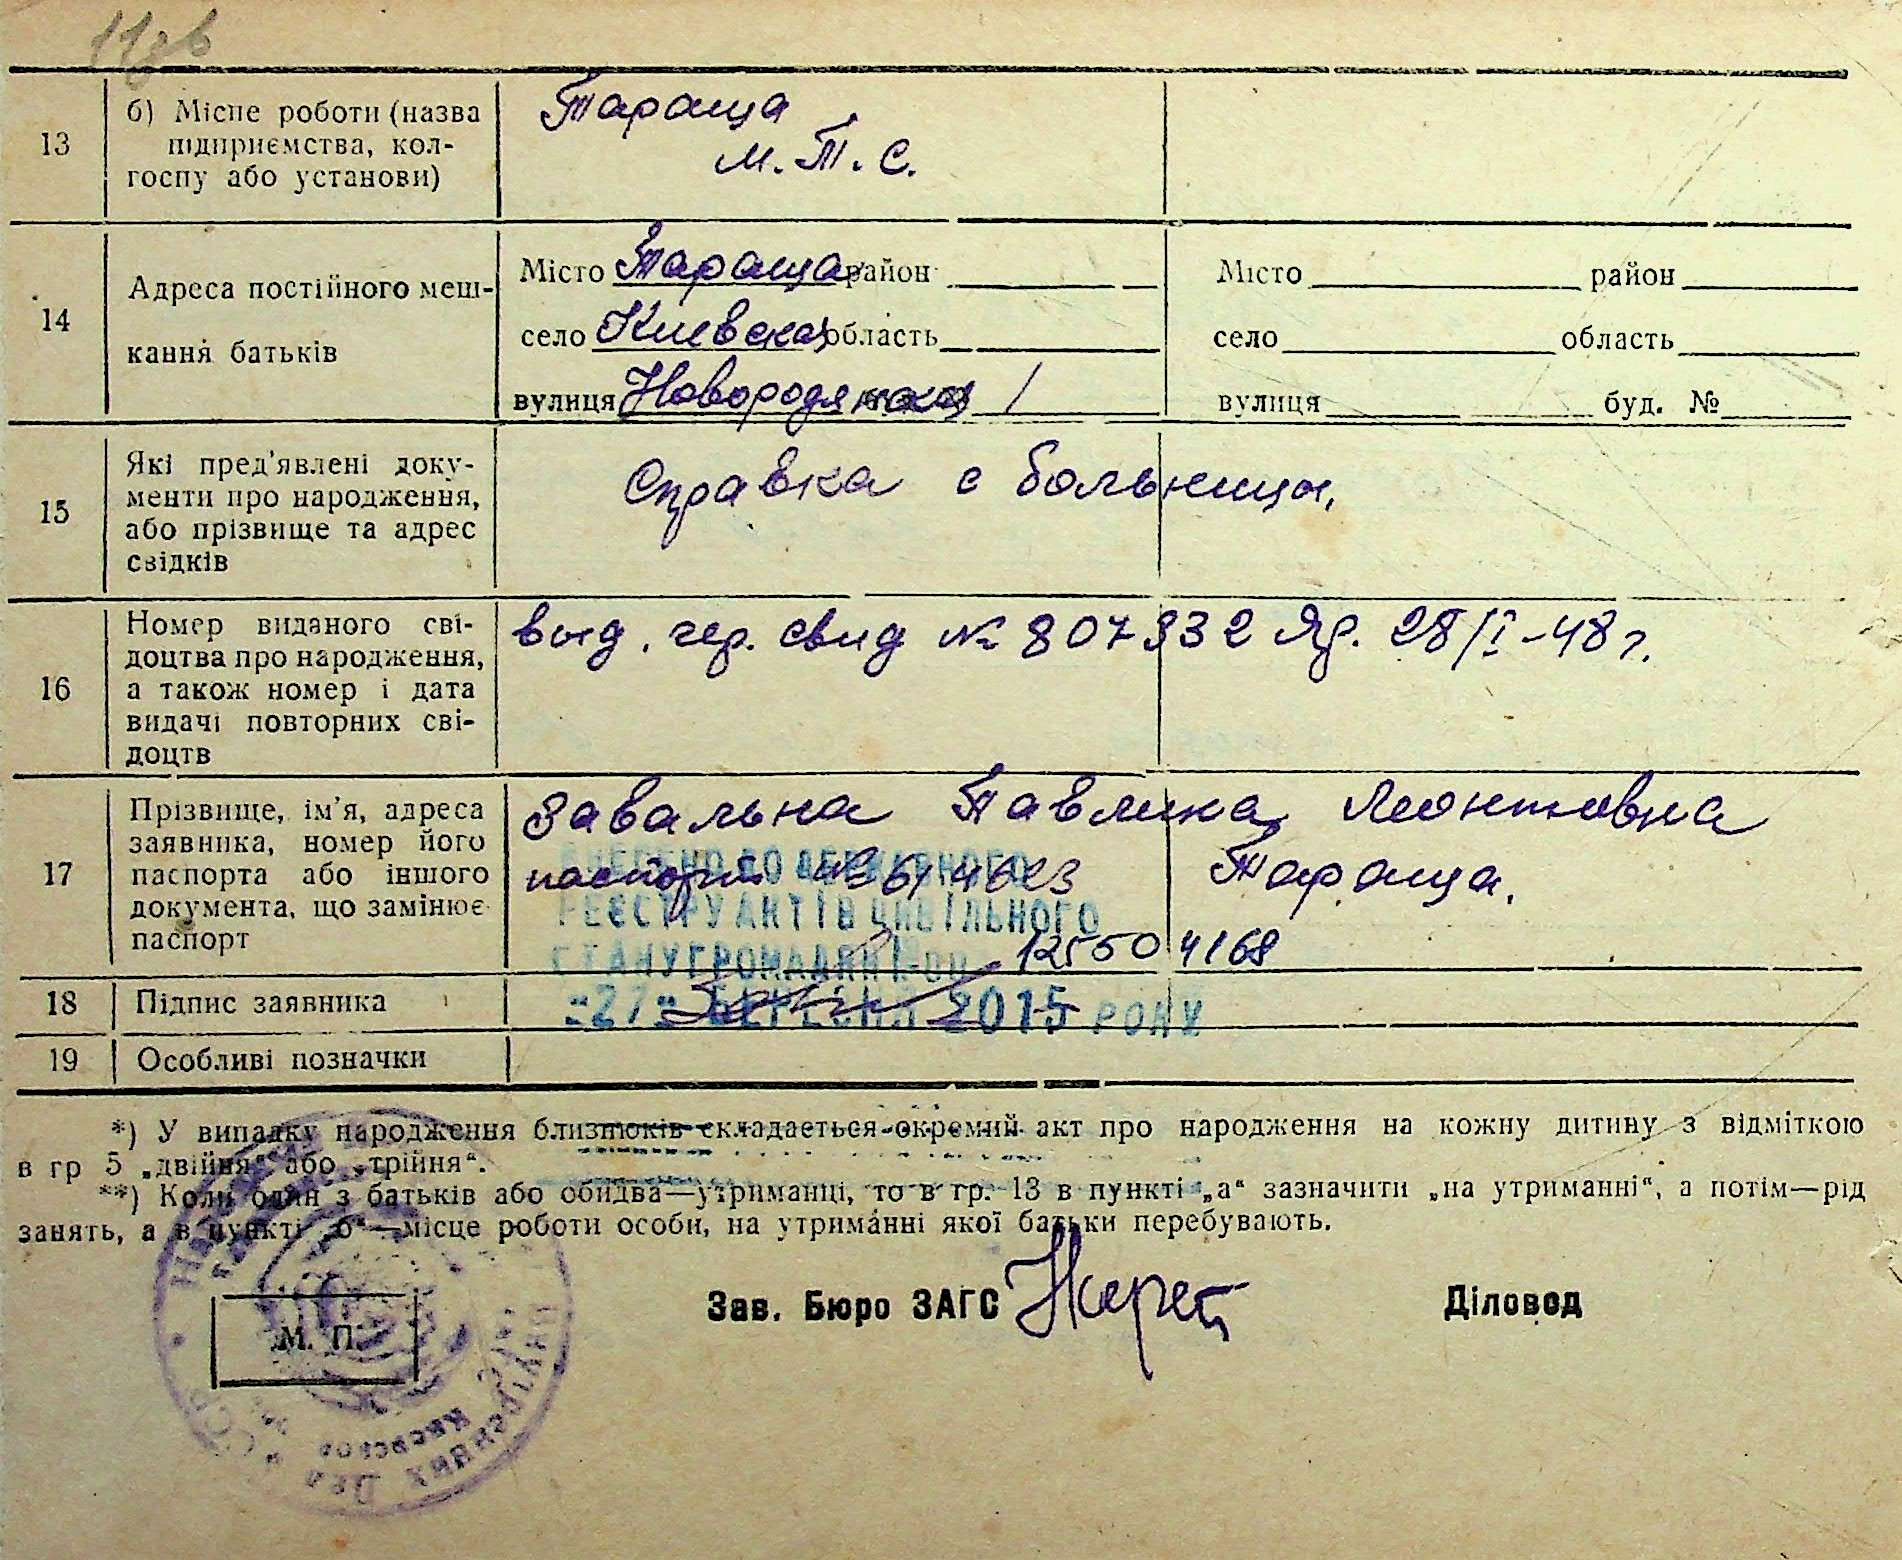 13
б) Місце роботи (назва
підприємства, кол-
госпу або установи)
Тараща
М.Т.С.
14
Адреса постійного меш-
кання батьків
Місто Тараща район
село Киевская область
вулиця 1
Місто район
село область
вулиця буд. №
15
Які пред'явлені доку-
менти про народження,
або прізвище та адрес
свідків
Справка с больницы.
16
Номер виданого сві-
доцтва про народження,
а також номер і дата
видачі повторних сві-
доцтв
выд. гер. свид № 807932 Яр. 28/I-48 г.
17
Прізвище, ім'я, адреса
заявника, номер його
паспорта або іншого
документа, що замінює
паспорт
Завальна Павлина Леонтовна
паспорт Тараща.
ВНЕСЕНО ДО ДЕРЖАВНОГО
РЕЄСТРУ АКТІВ ЦИВІЛЬНОГО
СТАНУ ГРОМАДЯН
12550 4168
18
Підпис заявника
"27" ВЕРЕСНЯ 2015 РОКУ
19
Особливі позначки
*) У випадку народження близтюків складається окремий акт про народження на кожну дитину з відміткою
в гр 5 „двійня“ або „трійня“.
**) Коли один з батьків або обидва—утриманці, то в гр. 13 в пункті „а“ зазначити „на утриманні“, а потім—рід
занять, а в пункті „б“—місце роботи особи, на утриманні якої батьки перебувають.
Зав. Бюро ЗАГС
Діловод
М. П.